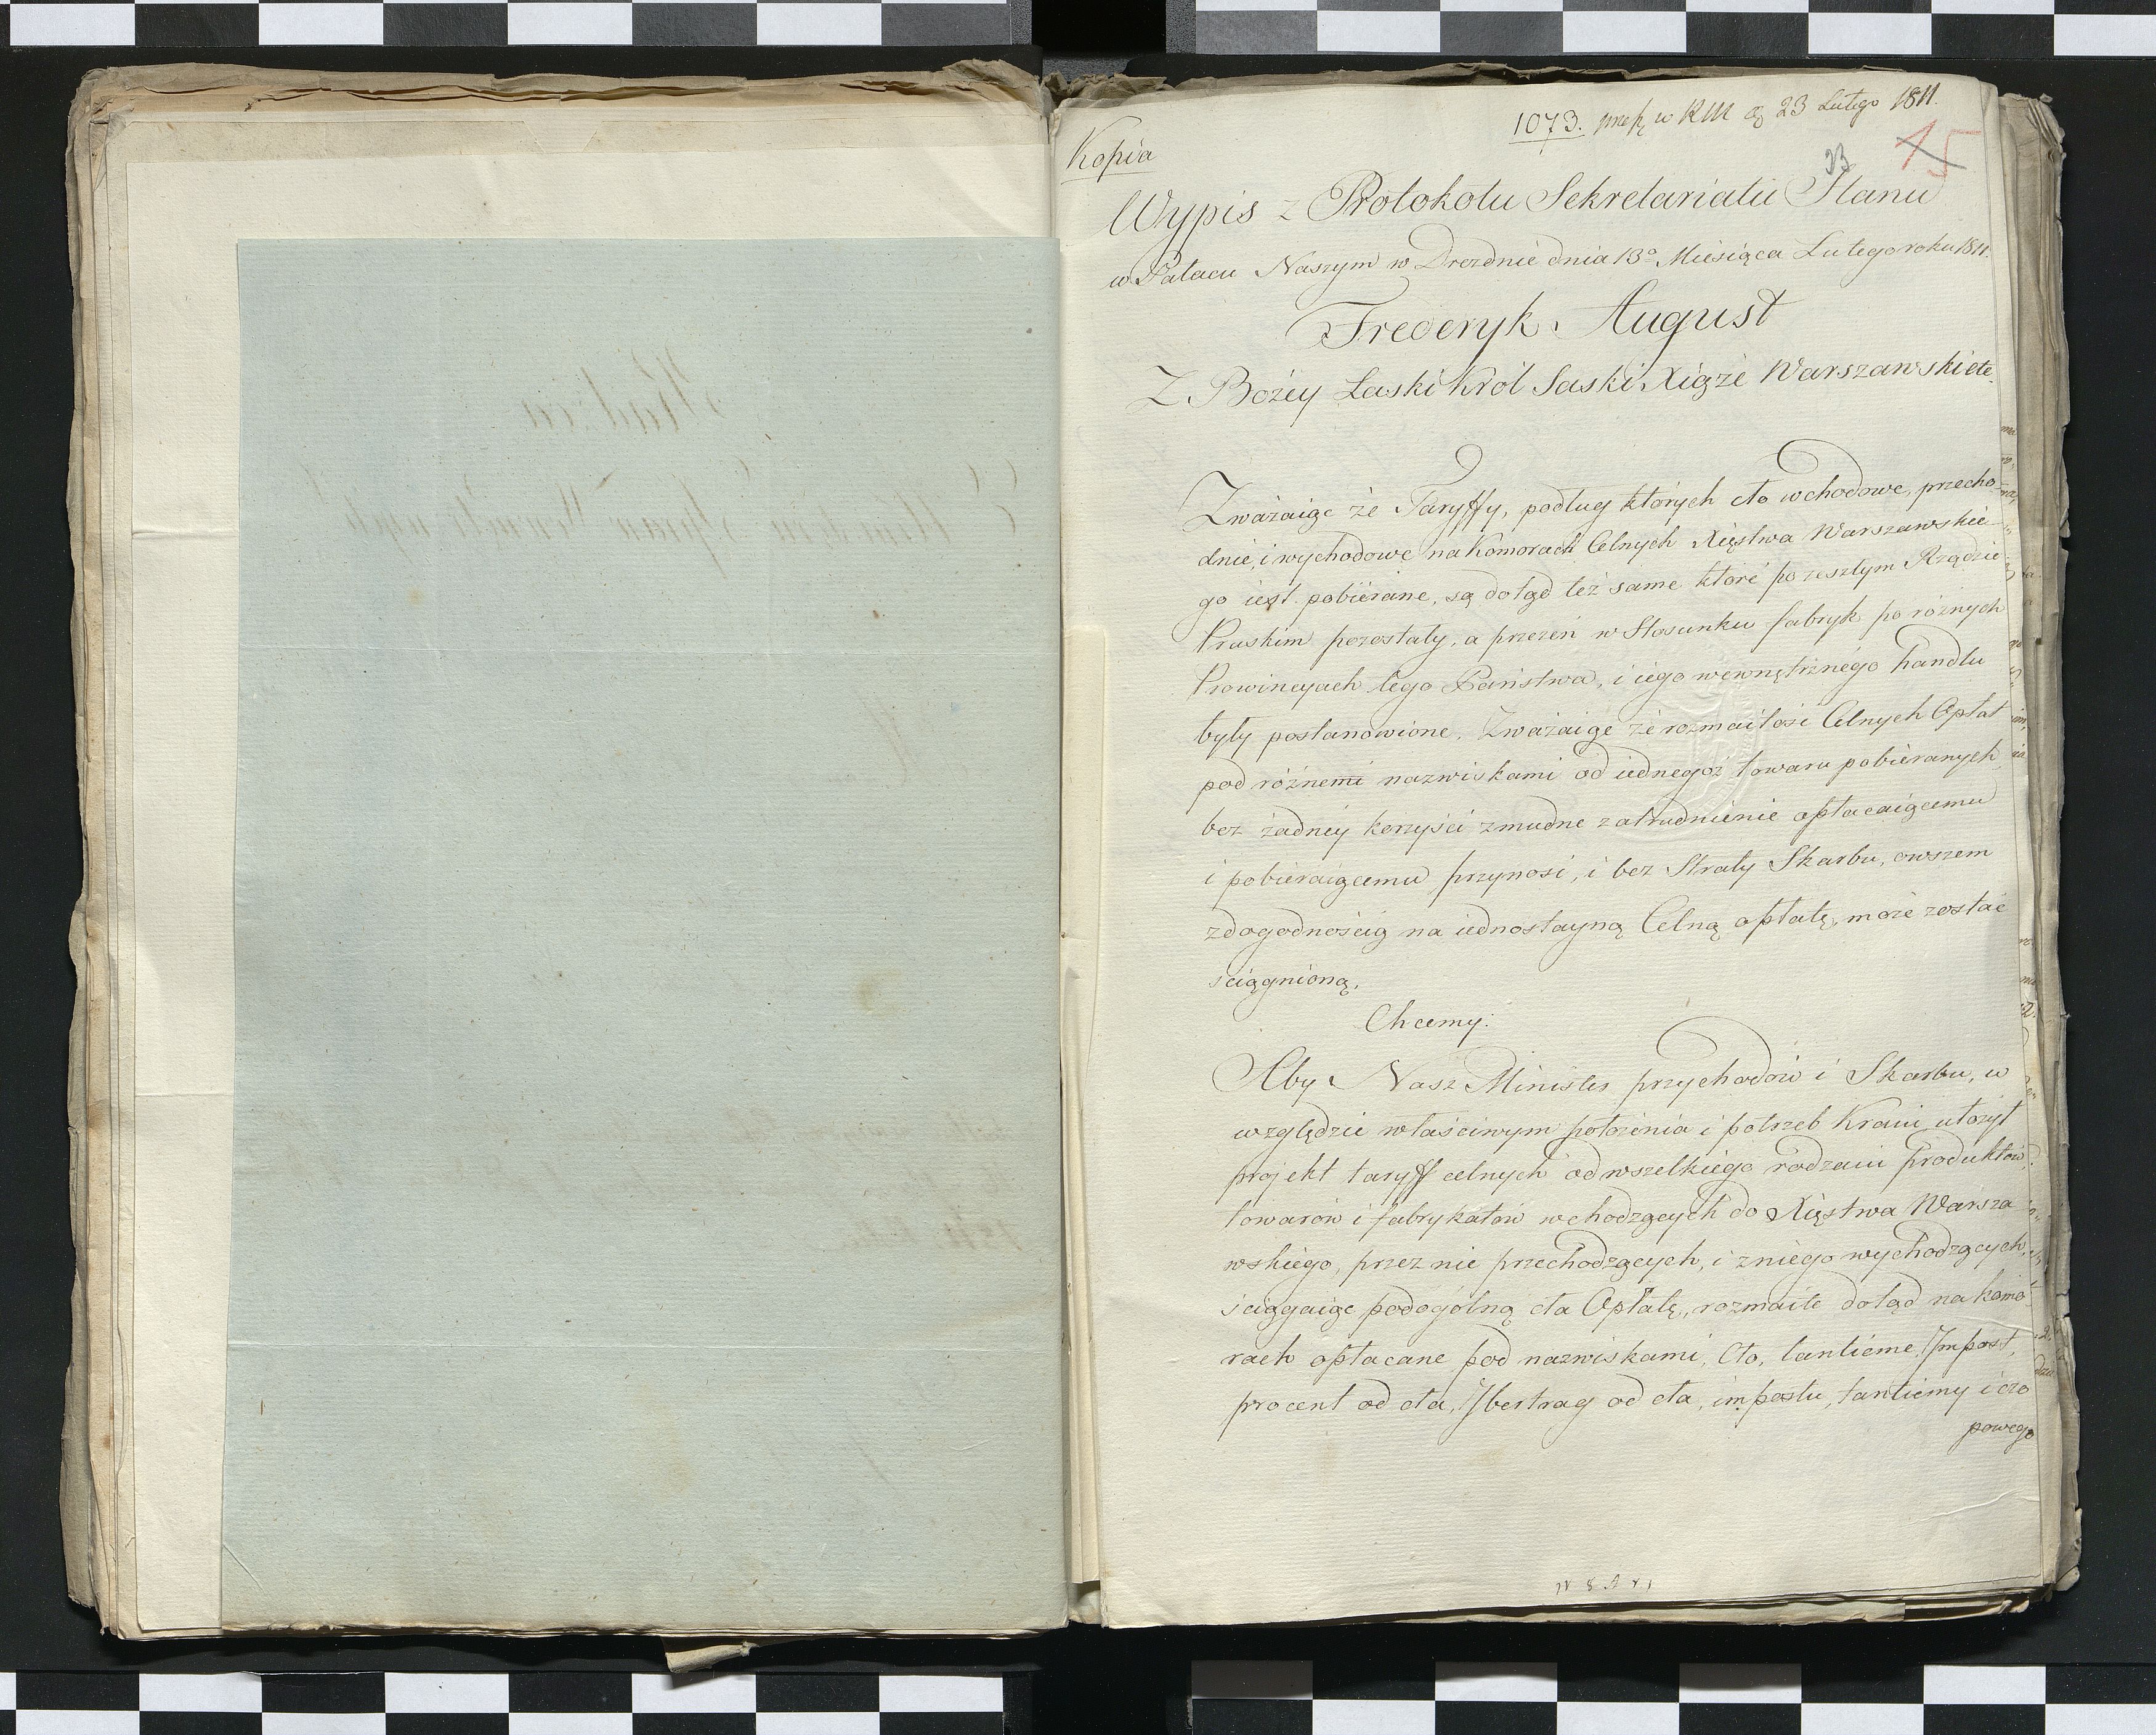 1073. w RM 23 Lutego 1811.
Kopia
23 15
Wypis z Protokołu Sekretariatu Stanu
w Pałacu Naszym w Dreznie dnia 13º Miesiąca Lutego roku 1811.
Frederyk August
Z Bożey Łaski Król Saski Xiąże Warszawski etc.
Zważaiąc że Taryffy, podług których cło wchodowe, przecho-
dnie, i wychodowe na Komorach Celnych Xięstwa Warszawskie-
go iest pobierane, są dotąd też same które po zeszłym Rządzie
Pruskim pozostały, a przezeń w Stosunku fabryk po różnych
Prowincyach tego Państwa, i iego wewnętrznego handlu
były postanowione. Zważaiąc że rozmaitość Celnych Opłat
pod różnemi nazwiskami od iednegoż towaru pobieranych
bez żadney korzyści zmudne zatrudnienie opłacaiącemu
i pobieraiącemu przynosi, i bez Straty Skarbu, owszem
z dogodnością na iednostayną Celną opłatę, może zostać
ściągnioną,
Chcemy:
Aby Nasz Minister przychodów i Skarbu, w
względzie właściwym położenia i potrzeb Kraiu ułożył
projekt taryff celnych od wszelkiego rodzaiu produktów,
towarów i fabrykatów wchodzących do Xięstwa Warsza
wskiego, przez nie przechodzących, i z niego wychodzących,
ściągaiąc pod ogólną cła Opłatę, rozmaite dotąd na komo-
rach opłacane pod nazwiskami, Cło, tantieme, Impost,
procent od cła, Ybertrag od cła, impostu, tantiemy i czo
powego